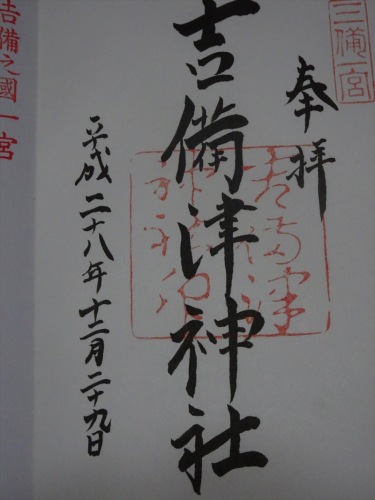 三備一宮
奉拝
吉備津神社
平成二十八年十二月二十九日
吉備之國一宮